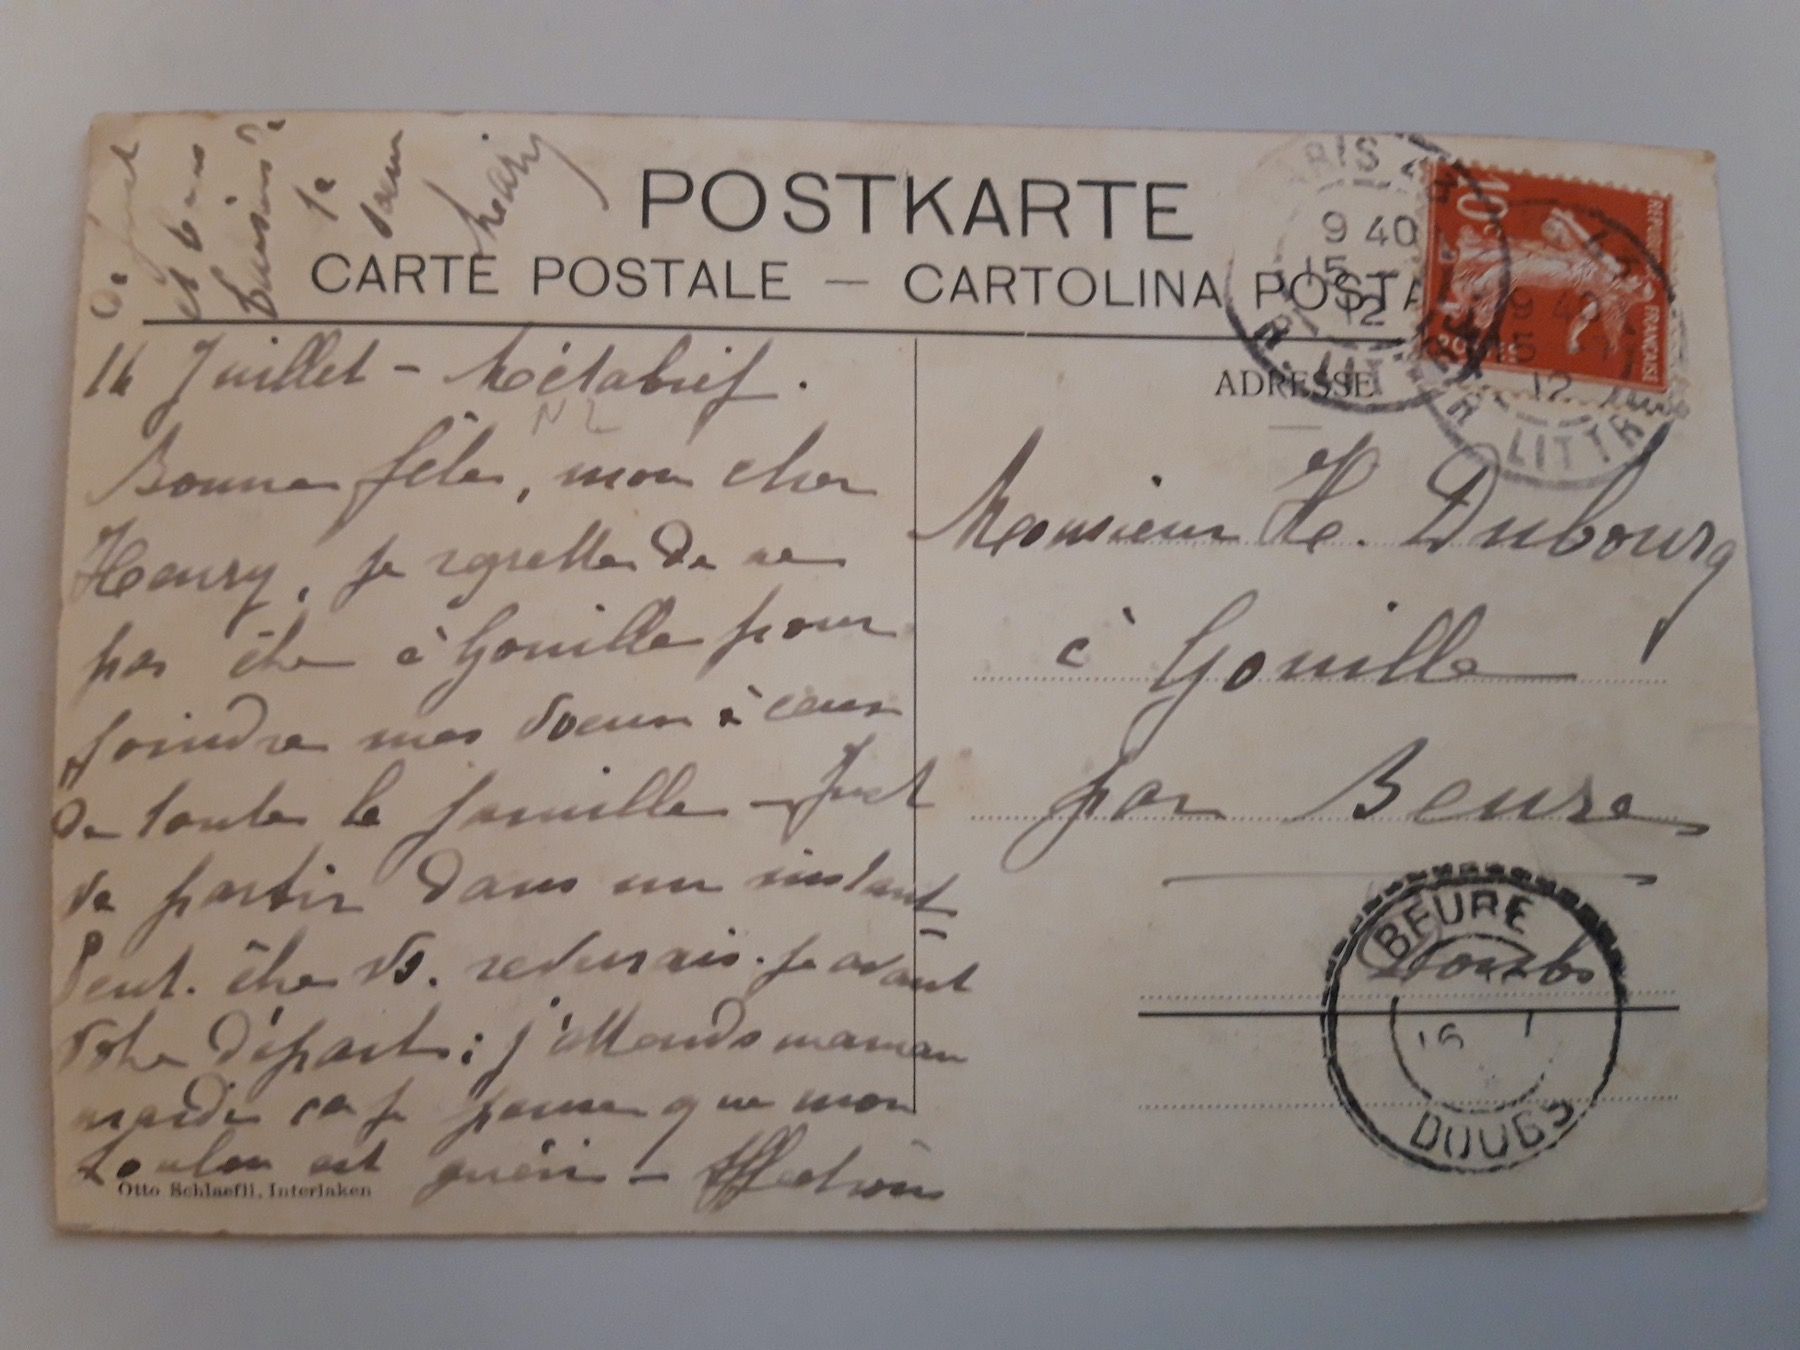 POSTKARTE
CARTE POSTALE — CARTOLINA POSTA
PARIS
9 40
15
12
R. LITTR
10c
REPUBLIQUE FRANÇAISE
POSTES
9 40
15
12
R. LITTR
ADRESSE
14 Juillet - Métabief.
Bonne fête, mon cher
Henry, je regrette de ne
pas être à Gouille pour
joindre mes vœux à ceux
de toute la famille - Just
va partir dans un instant
Peut. être vs. reverrais-je avant
votre départ; j'attends maman
mardi ca je pense que mon
est guéri -
de Just
et bons
baisers de
ta
sœur
Monsieur H. Dubourg
à Gouille
par Beure
Doubs
BEURE
16 1
DOUBS
Otto Schlaefli, Interlaken